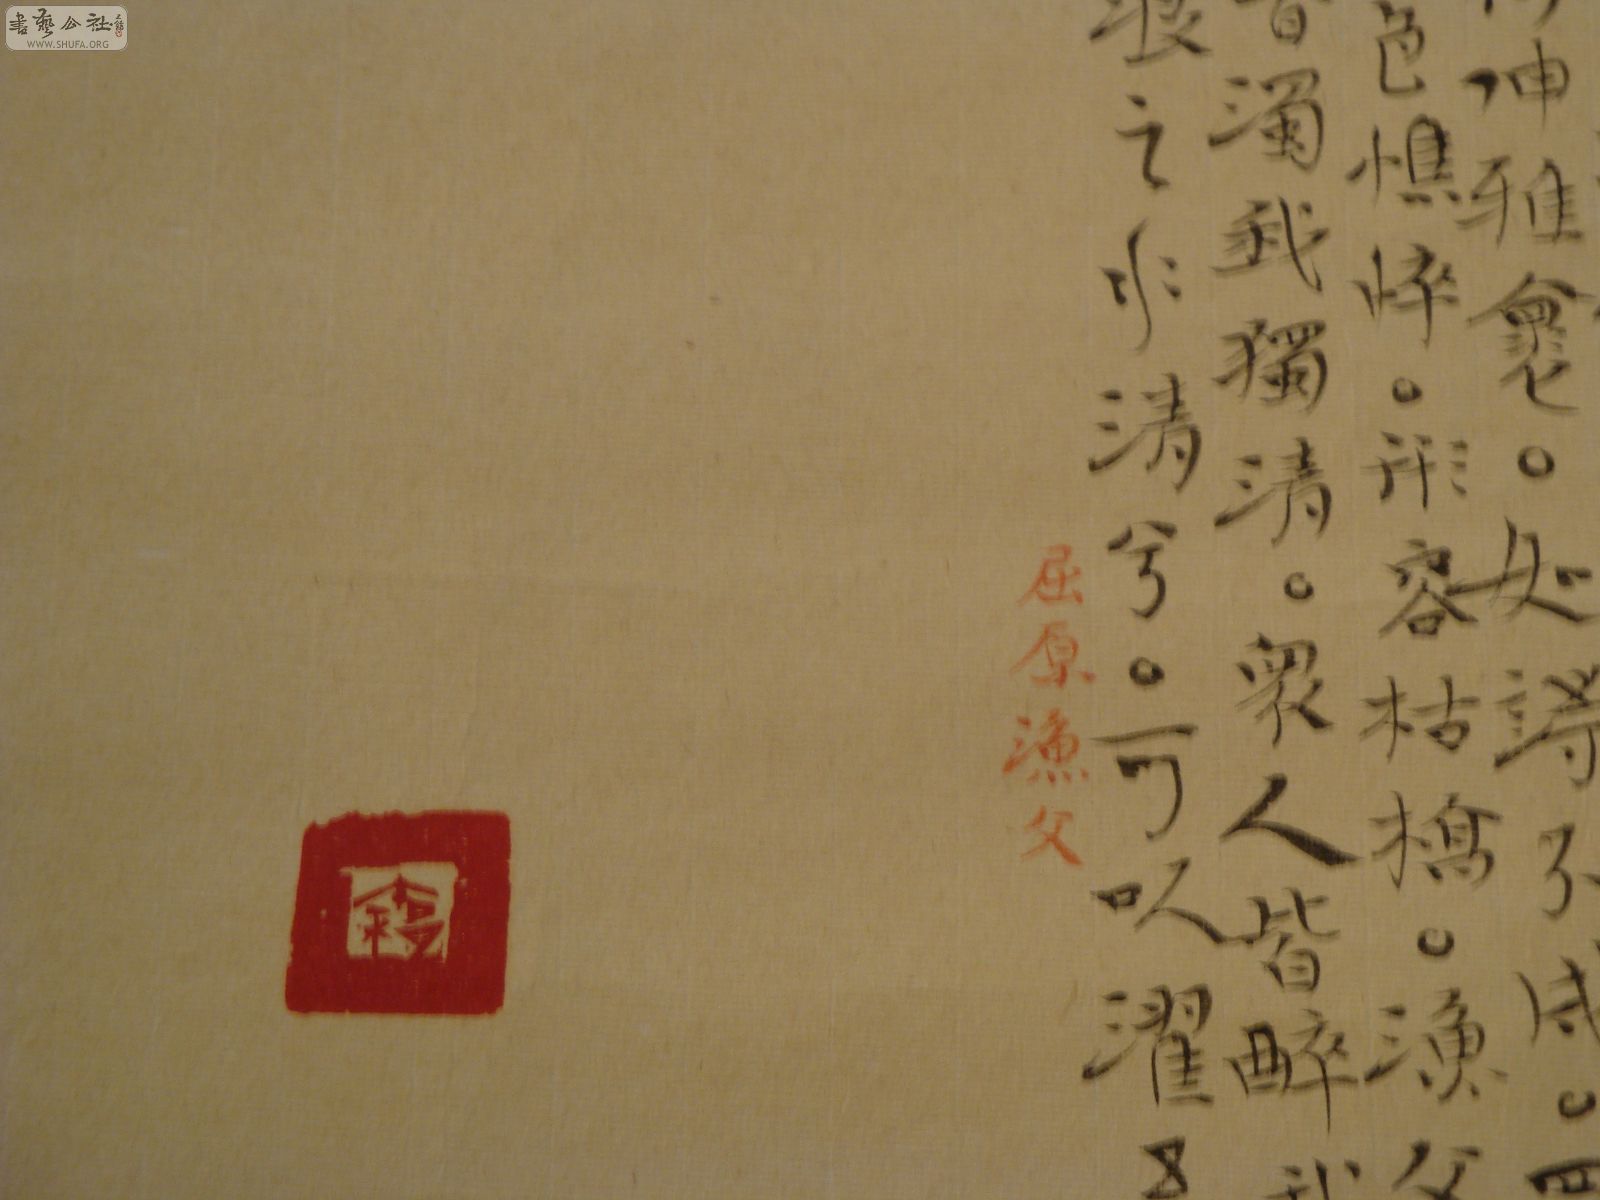 伸雅褱。如謣不咸。四
色憔悴。形容枯槁。漁父
皆濁我獨清。衆人皆醉我
浪之水清兮。可以濯吾
屈原漁父
書藝公社
WWW.SHUFA.ORG